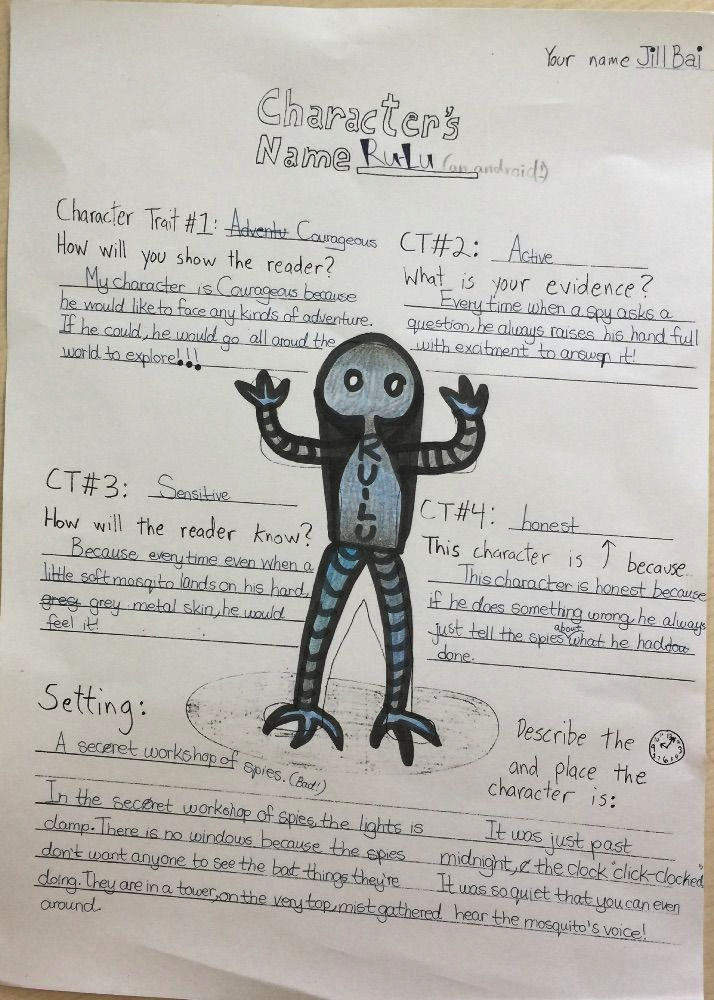 Your name Jill Bai
Character's
Name Ru-Lu (an android!)
Character Trait #1: Adventu Courageous
How will you show the reader?
My character is Courageous because
he would like to face any kinds of adventure.
If he could, he would go all aroud the
world to explore!!!
CT#2: Active
What is your evidence?
Every time when a spy asks a
question, he always raises his hand full
with excitment to answer it!
RU-LU
CT#3: Sensitive
How will the reader know?
Because everytime even when a
little soft mosqito lands on his hard,
grey grey metal skin, he would
feel it!
CT#4: honest
This character is ↑ because...
This character is honest because
if he does something wrong, he always
just tell the spies about what he had
done.
Setting:
A seceret workshop of spies. (Bad!)
In the seceret workshop of spies, the lights is
damp. There is no windows because the spies
don't want anyone to see the bad things they're
doing. They are in a tower, on the very top, mist gathered
around.
Describe the
and place the
character is:
It was just past
midnight, & the clock "click-clocked"
It was so quiet that you can even
hear the mosquito's voice!